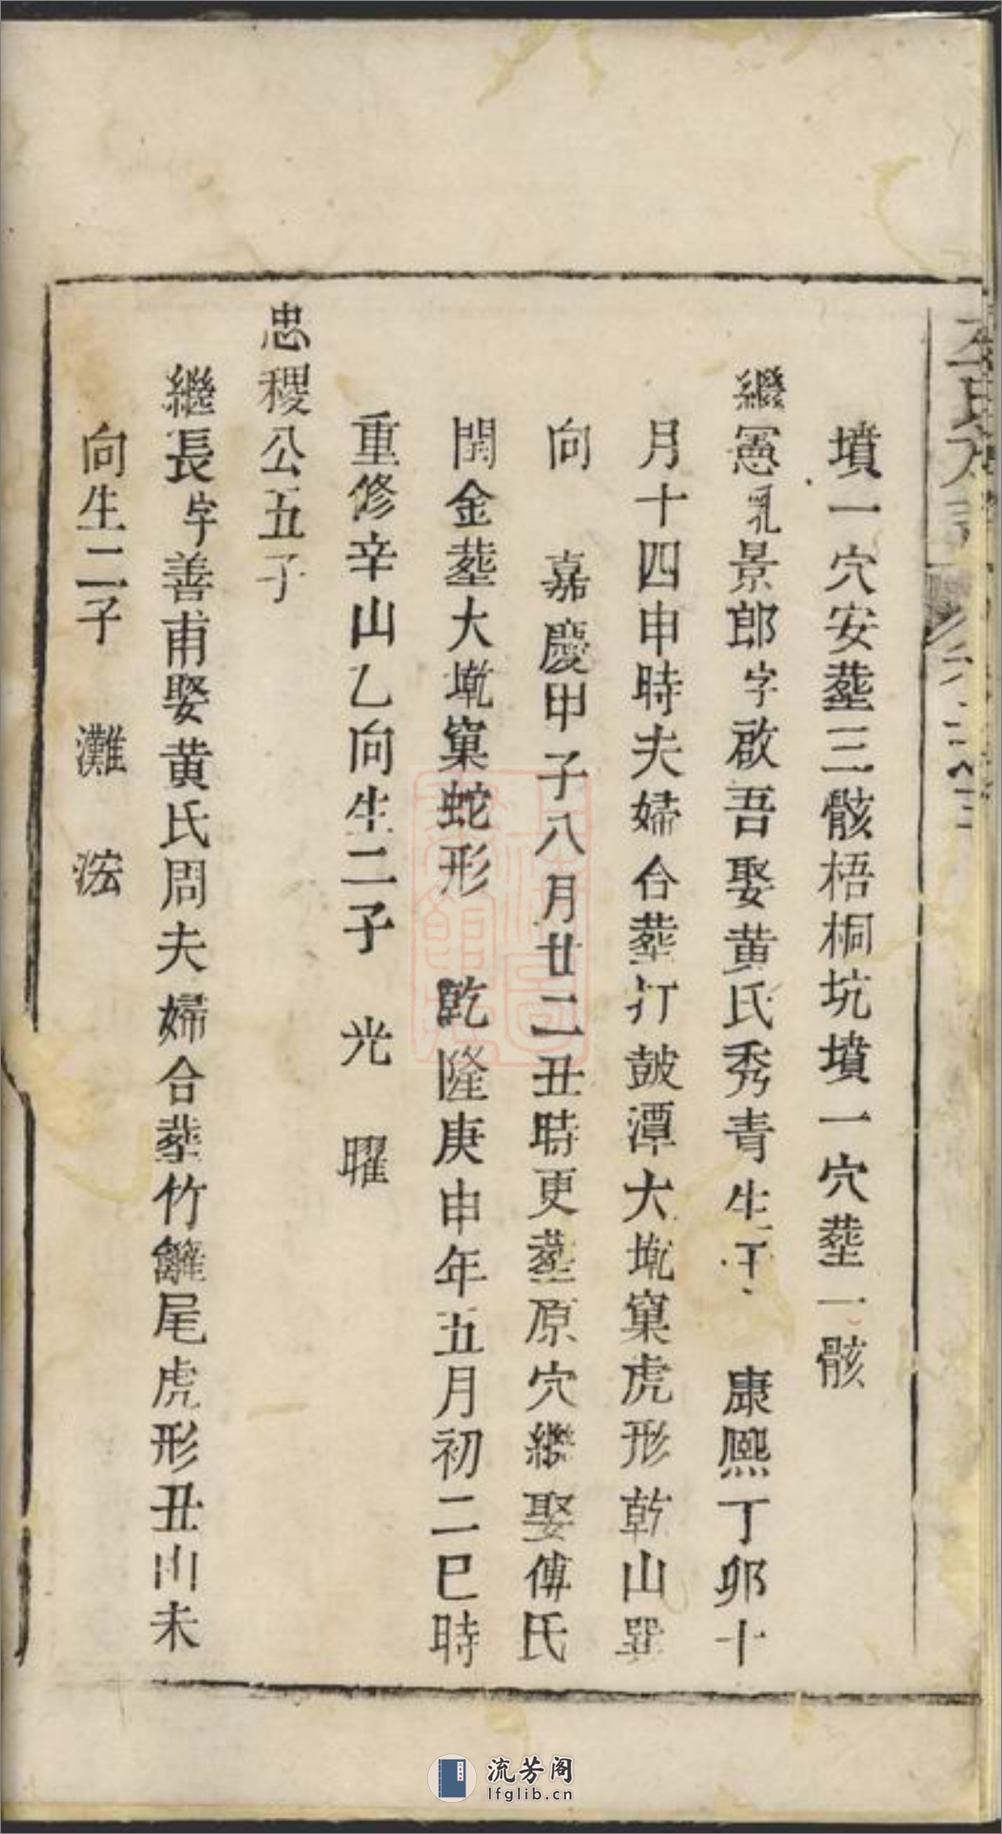 墳一穴安塟三骸梧桐坑墳一穴塟一骸
繼憲乳景郎字啟吾娶黄氏秀青生于 康熈丁卯十
月十四申時夫婦合塟打鼓潭大𡑞窠虎形乾山巽
向 嘉慶甲子八月廿二丑時更塟原穴繼娶傅氏
閏金塟大𡑞窠蛇形 乾隆庚申年五月初二巳時
重修辛山乙向生二子 光 曜
忠稷公五子
繼長字善甫娶黄氏周夫婦合塟竹籬尾虎形丑山未
向生二子 灘 浤
流芳阁
lfglib.cn